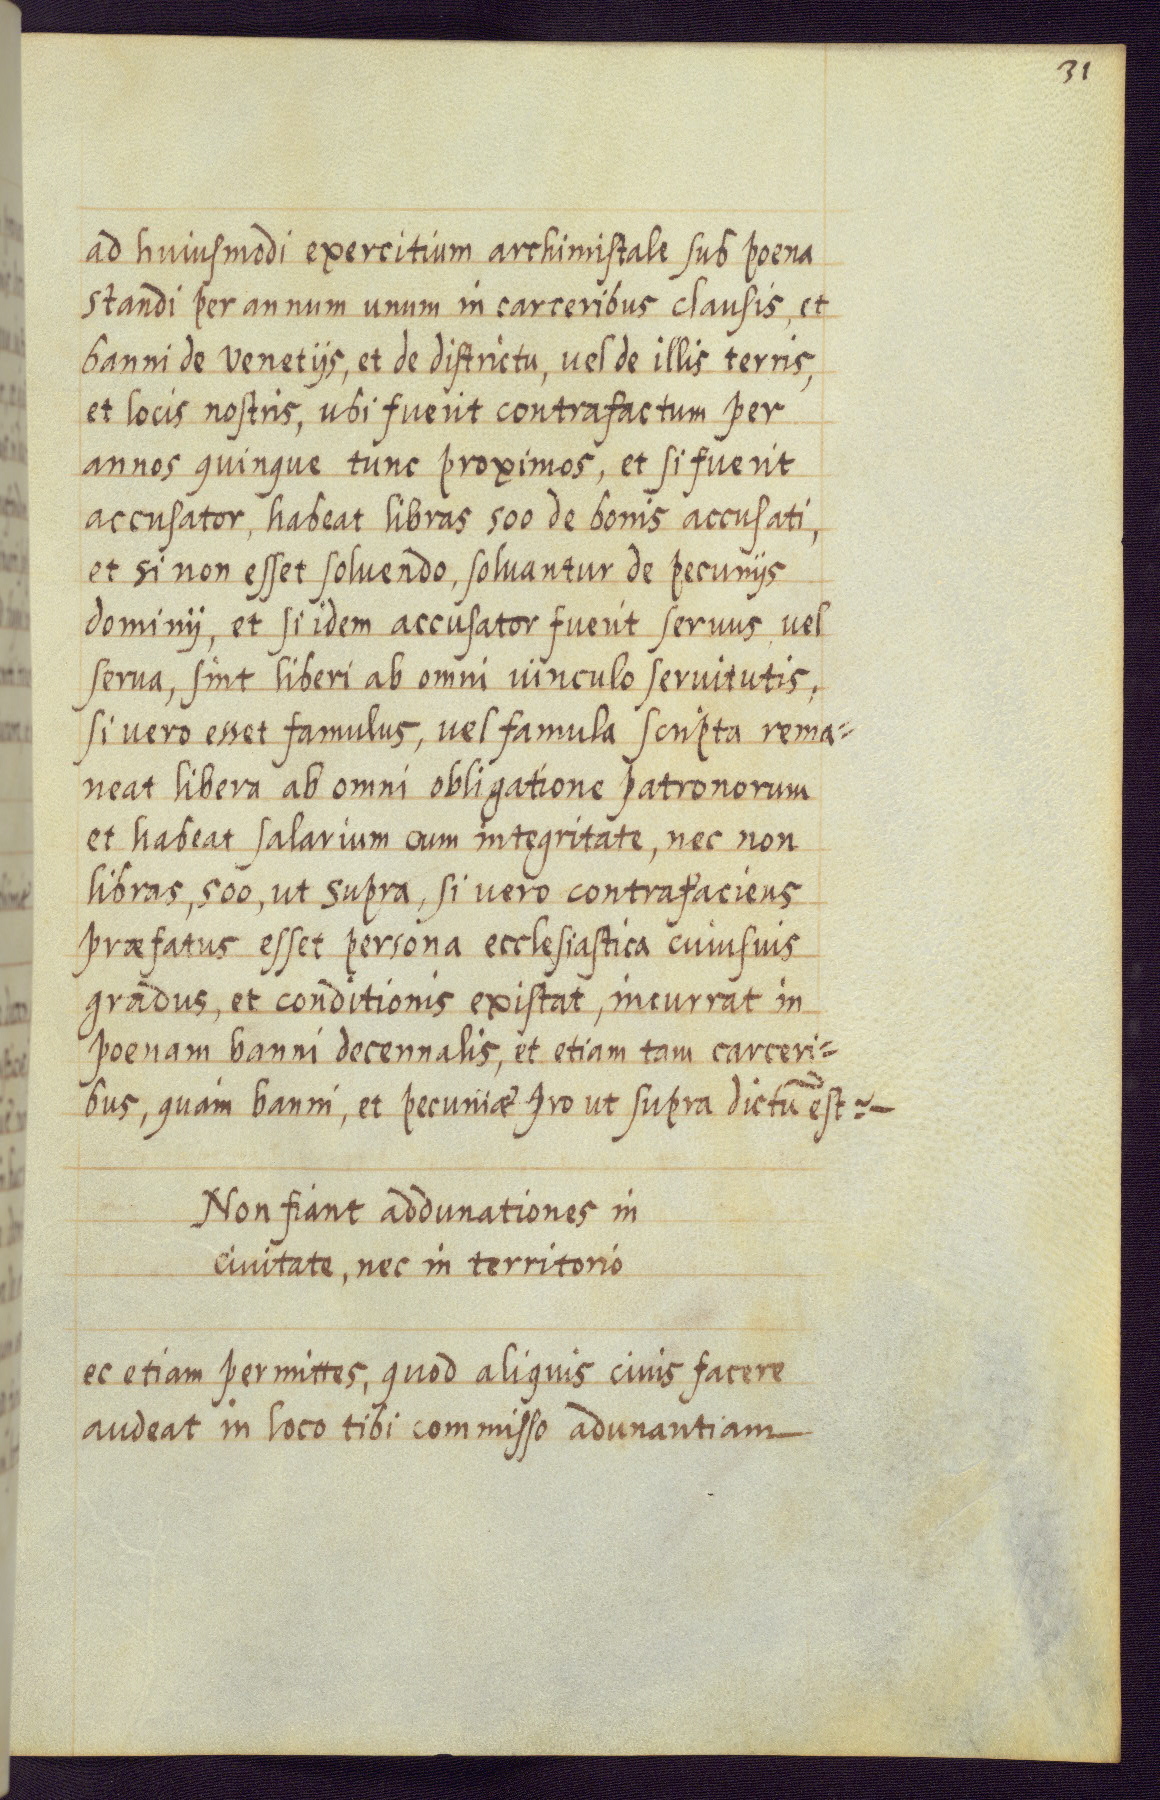 31
ad huiusmodi exercitium archimistale sub poena
standi per annum unum in carceribus clausis, et
banni de Venetijs, et de districtu, vel de illis terris,
et locis nostris, ubi fuerit contrafactum per
annos quinque tunc proximos, et si fuerit
accusator, habeat libras 500 de bonis accusati,
et si non esset soluendo, soluantur de pecunijs
dominij, et si idem accusator fuerit seruus vel
serua, sint liberi ab omni vinculo seruitutis,
si vero esset famulus, vel famula scripta rema=
neat libera ab omni obligatione patronorum
et habeat salarium cum integritate, nec non
libras, 500, ut supra, si vero contrafaciens
præfatus esset persona ecclesiastica cuiusuis
gradus, et conditionis existat, incurrat in
poenam banni decennalis, et etiam tam carceri=
bus, quam banni, et pecuniæ pro ut supra dictũ est :~
Non fiant addunationes in
ciuitate, nec in territorio
ec etiam permittes, quod aliquis ciuis facere
audeat in loco tibi commisso adunantiam